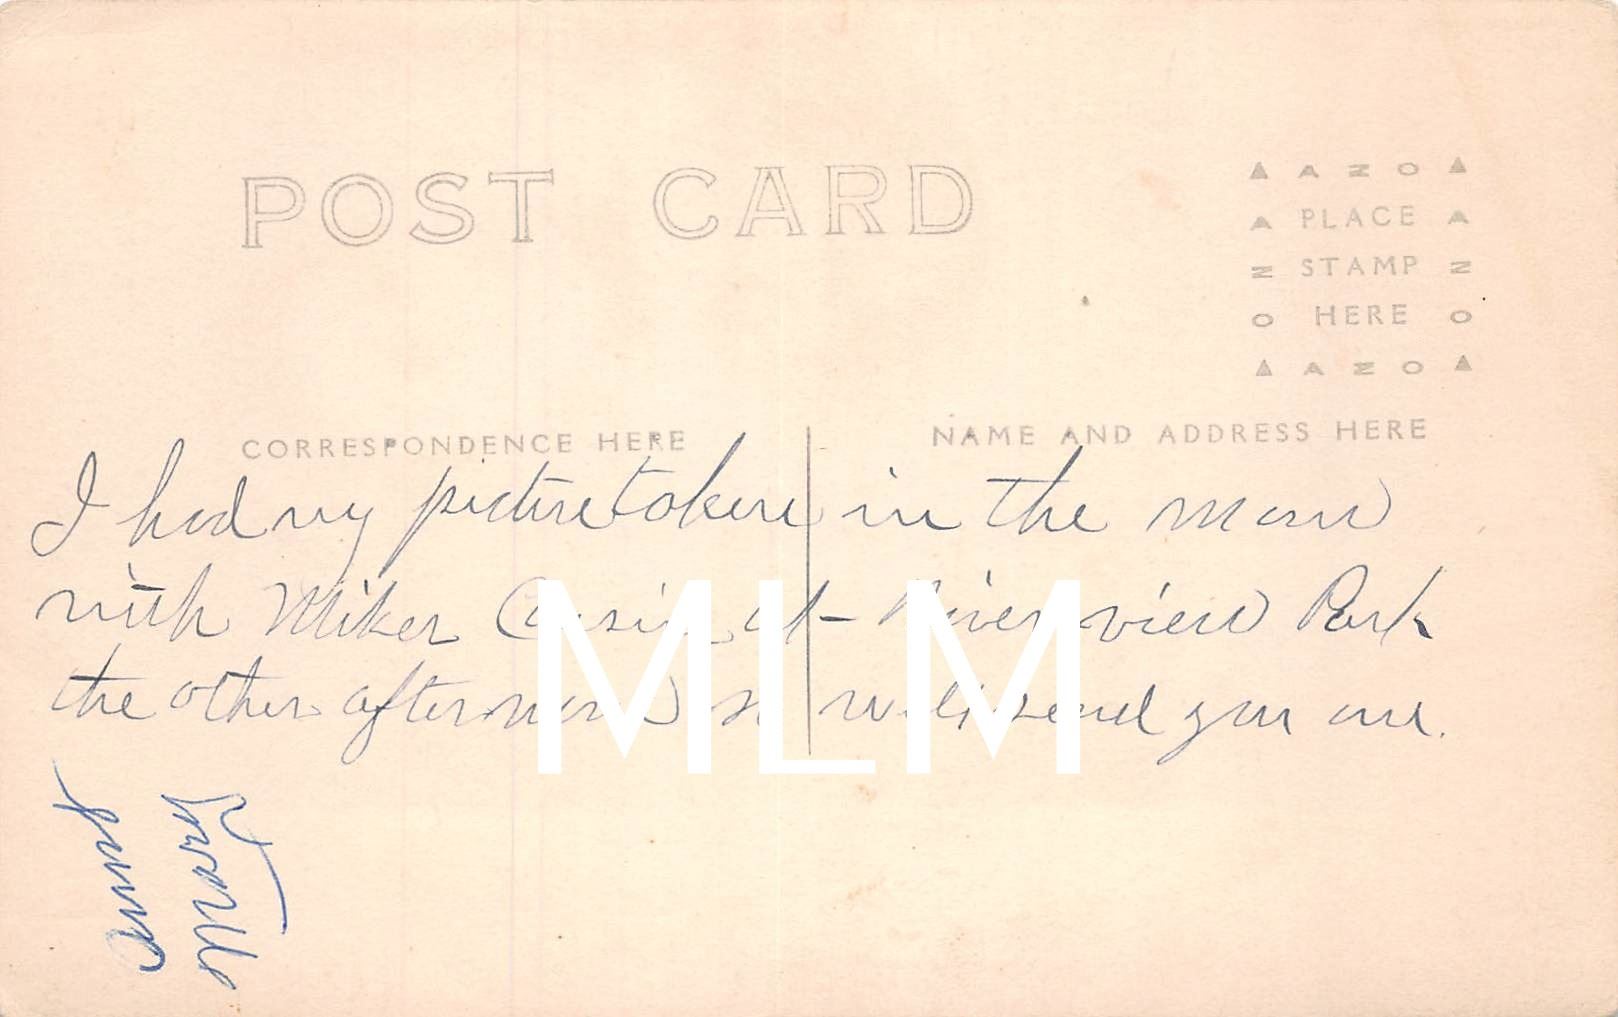 POST CARD
▲ AZO ▲
A PLACE A
Z STAMP Z
O HERE O
▲ AZO ▲
CORRESPONDENCE HERE
NAME AND ADDRESS HERE
I had my picture taken in the moon
with Mike's Cousin at Riverview Park
the other afternoon so will send you one.
MLM